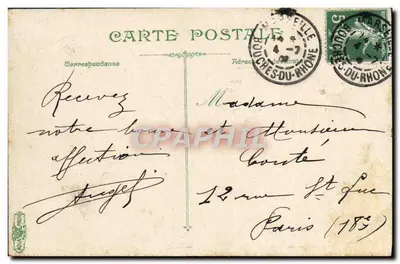 CARTE POSTALE
Correspondance
MARSEILLE
4-7
BOUCHES-DU-RHONE
MARSEILLE
BOUCHES-DU-RHONE
5
Recevez
notre bonne
affection
Angel
Madame
et Monsieur
Comte
12 rue St Luc
Paris (18e)
CARTAPHILIA